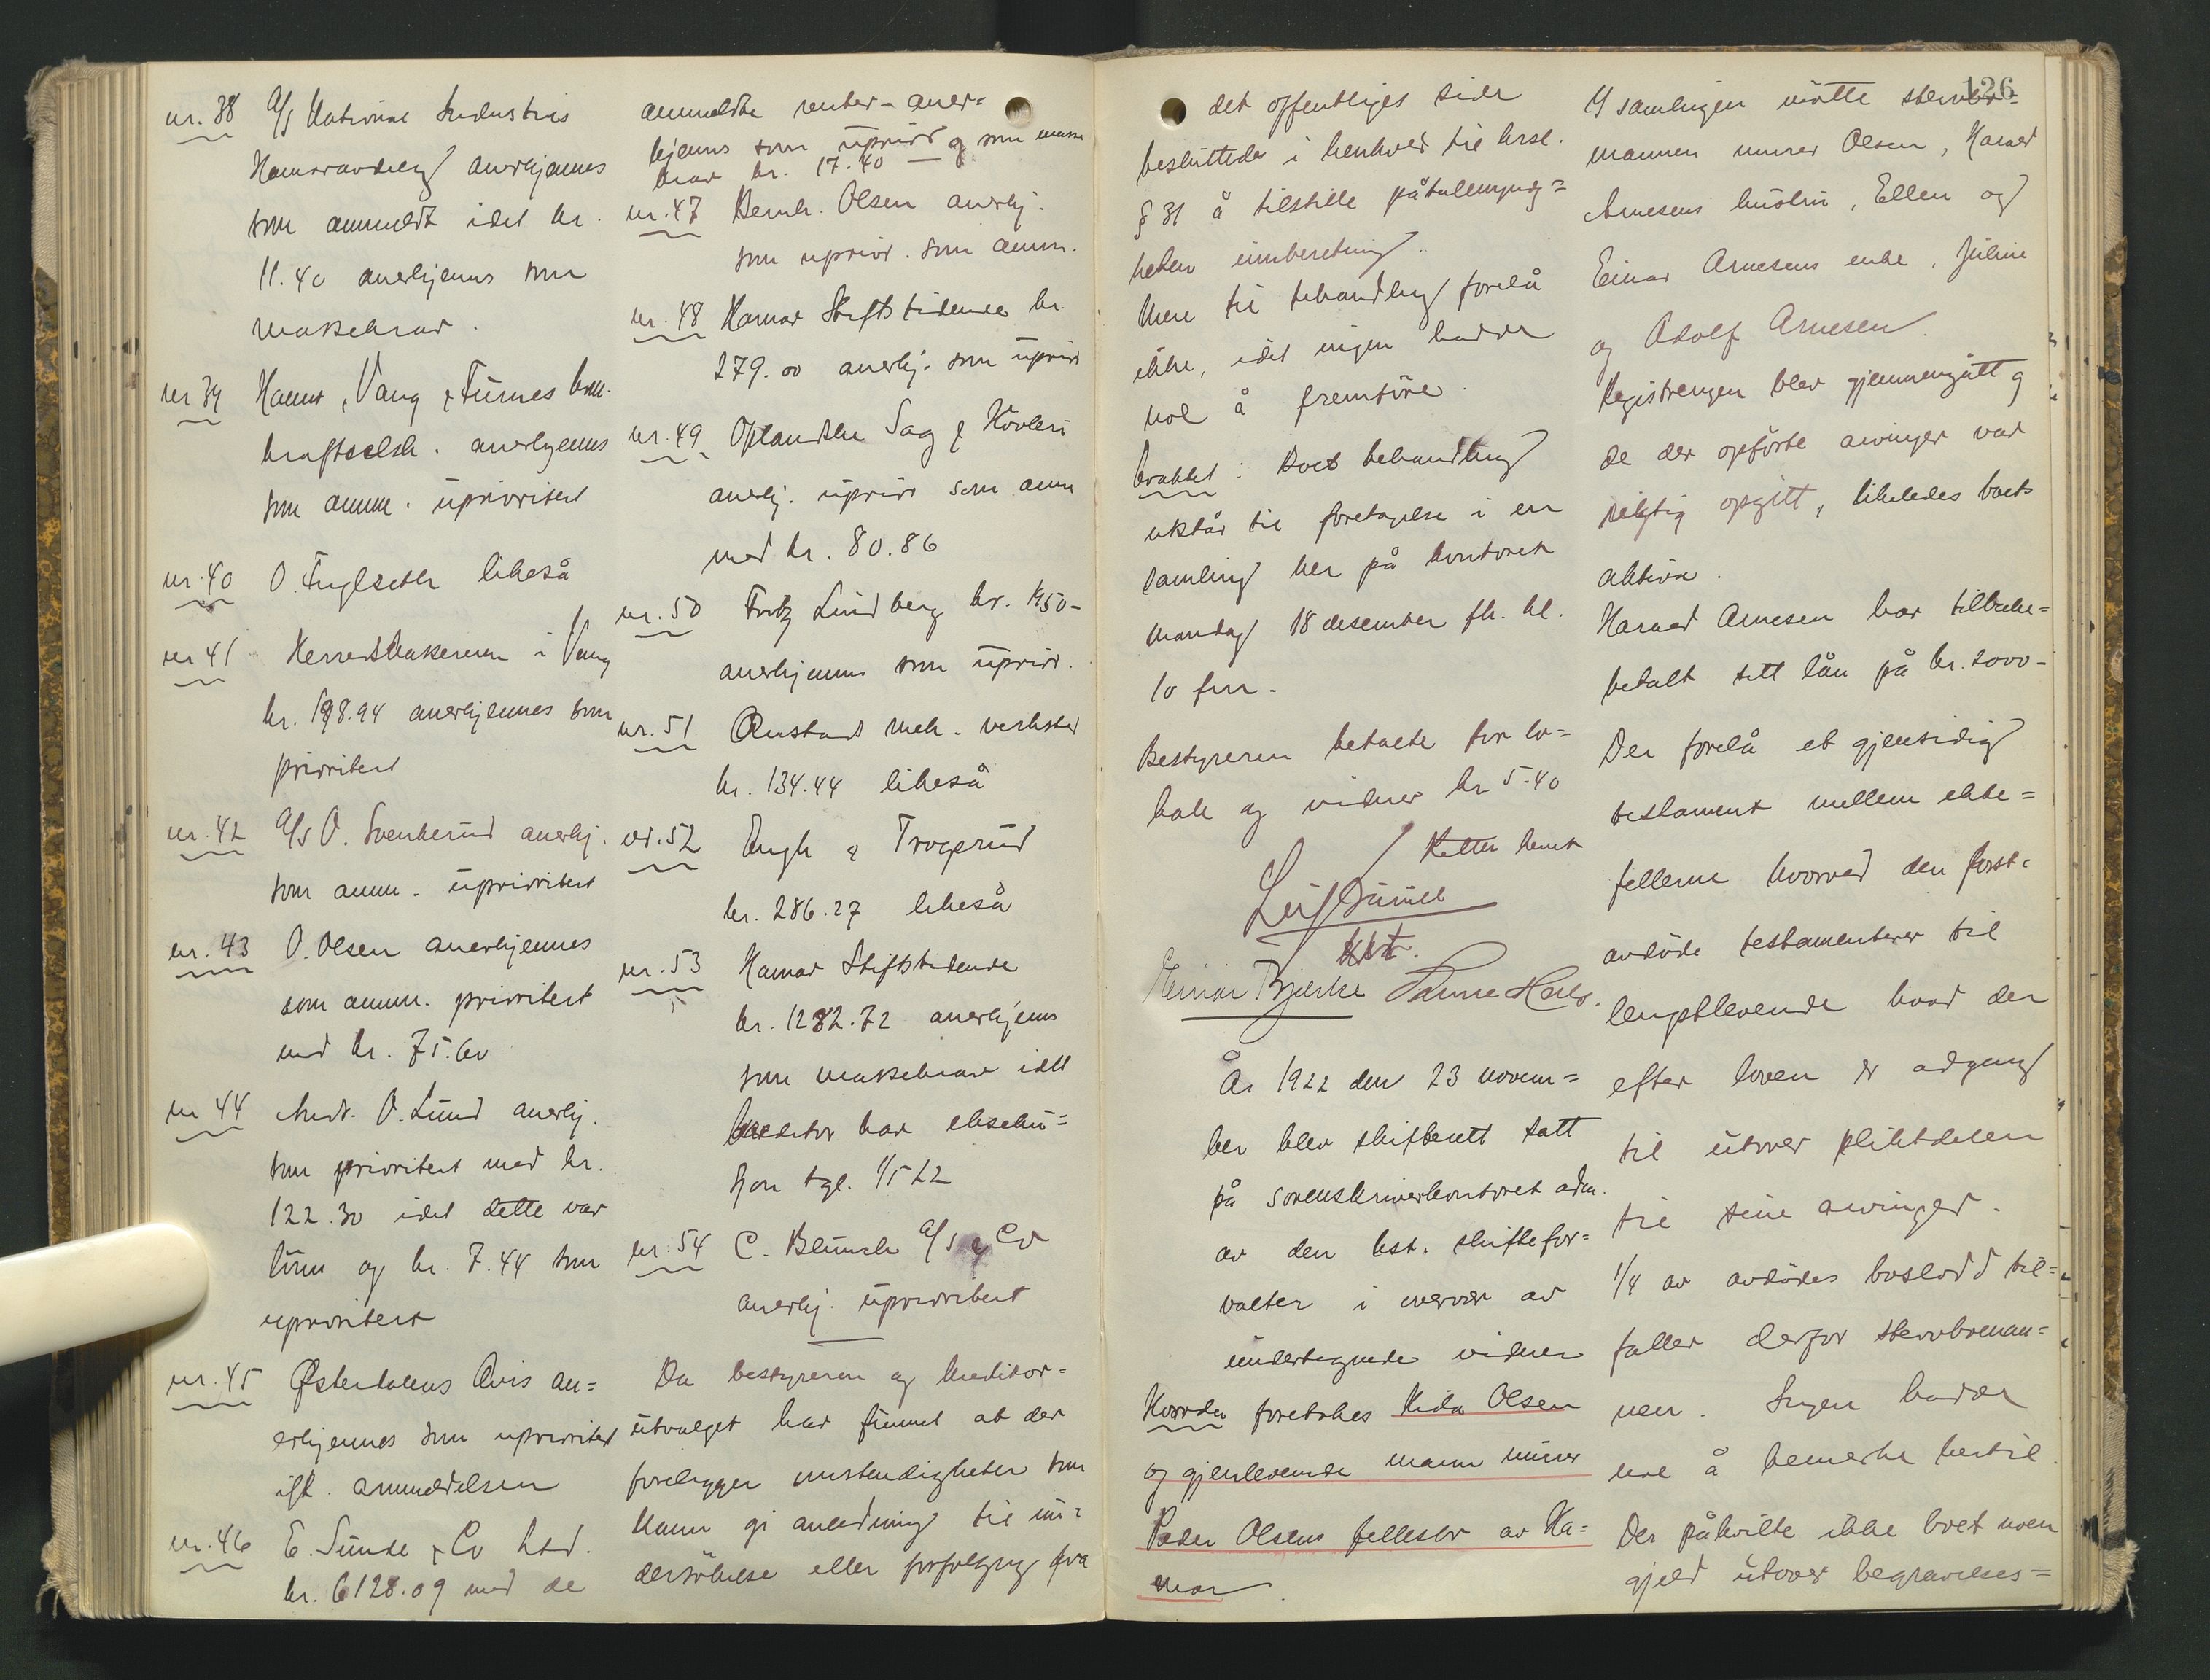 nr. 38 A/S National Industris
Hamaravdeling anerkjennes
som anmeldt idet kr.
11.40 anerkjennes som
massekrav.
nr 39 Hamar, Vang & Furnes kom.
kraftselsk. anerkjennes
som anm. uprioritert
nr. 40 O. Fuglseth likeså
nr 41 Herredskassereren i Vang
kr. 198.94 anerkjennes som
prioritert
nr. 42 A/S O. Svenkerud anerkj.
som anm. uprioritert
nr. 43 O. Olsen anerkjennes
som anm. prioritert
med kr. 75.60
nr 44 Andr. O. Lund anerkj.
som prioritert med kr.
122.30 idet dette var
lönn og kr. 7.44 som
uprioritert
nr. 45 Østerdalens Avis an=
erkjennes som uprioritert
ifl. anmeldelsen
nr. 46 E. Sunde & Co Ltd.
kr. 6128.09 med de
anmeldte renter - aner=
kjennes som upriort og som masse
krav kr. 17.40
nr. 47 Bernh. Olsen anerkj.
som uprior. som anm.
nr. 48 Hamar Stiftstidende kr.
279.00 anerkj. som uprior
nr. 49 Oplandske Sag & Hövleri
anerkj. uprior som anm
med kr. 80.86
nr. 50 Fritz Lundberg kr. 150-
anerkjennes som uprior.
nr. 51 Ånstad mek. verksted
kr. 134.44 likeså
nr. 52 Engh & Trogsrud
kr. 286.27 likeså
nr. 53 Hamar Stiftstidende
kr. 1282.72 anerkjennes
som massekrav idet
kreditor har ekseku=
sjon tgl. 1/5 22
nr. 54 C. Blunch A/S & Co
anerkj. uprioritert
Da bestyreren og kreditor=
utvalget har funnet at der
foreligger omstendigheter som
kann gi anledning til un=
dersökelse eller forfolgning fra
det offentliges side
besluttedes i henhold til krsl.
§ 31 å tilstille påtalemyndig=
heten innberetning.
Mere til behandling forelå
ikke, idet ingen hadde
noe å fremföre.
Avsluttet: Boets behandling
utstår til foretagelse i en
samling her på kontoret
mandag 18 desember fk. kl.
10 fm.
Bestyreren betalte for lo=
kale og vidner kr 5.40
Retten hevet
kst.
Einar Bjerke
År 1922 den 23 novem=
ber blev skifterett satt
på sorenskriverkontoret adm.
av den kst. skiftefor=
valter i overvær av
undertegnede vidner
Hvorda foretokes Hida Olsen
og gjenlevende mann murer
Peder Olsens fellesbo av Ha=
mar
126
I samlingen mötte stervbo=
mannen murer Olsen, Harald
Arnesens hustru, Ellen og
Einar Arnesens enke, Juline
og Adolf Arnesen.
Registreringen blev gjennemgått og
de der opförte arvinger var
riktig opgitt, likeledes boets
aktiva.
Harald Arnesen har tilbake=
betalt sitt lån på kr. 2000-
Der forelå et gjensidig
testament mellem ekte=
fellerne hvorved den först=
avdöde testamenterer til
lengstlevende hvad der
efter loven er adgang
til utover pliktdelen
til sine arvinger.
1/4 av avdödes boslodd til=
faller derfor stervboman=
nen. Ingen hadde
noe å bemerke hertil.
Der påhvilte ikke boet noen
gjeld utover begravelses=